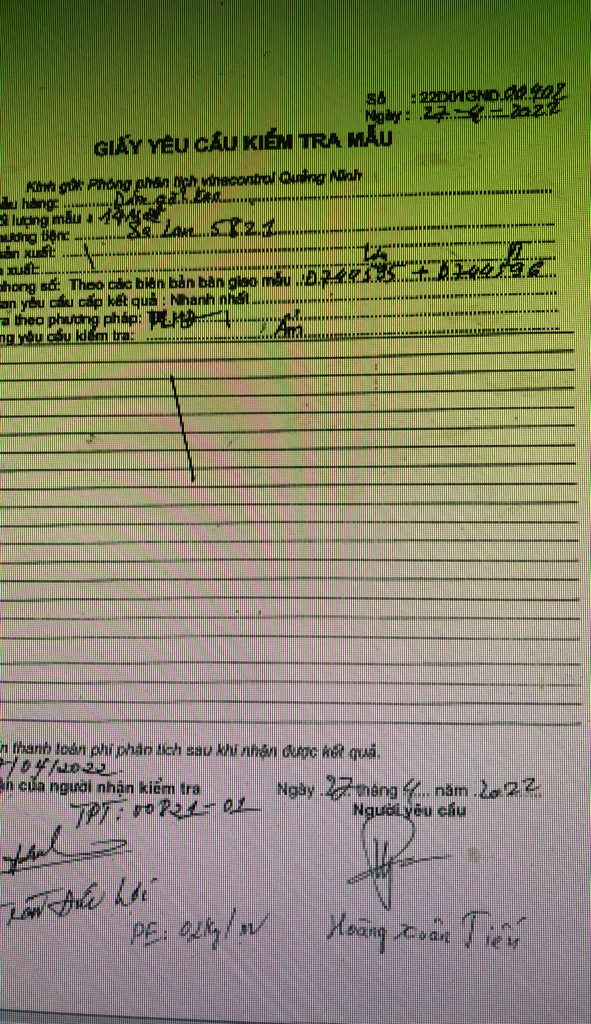 Số : 22D01GND.00402
Ngày : 27-4-2022
GIẤY YÊU CẦU KIỂM TRA MẪU
Kính gửi: Phòng phân tích vinacontrol Quảng Ninh
ẫu hàng: Dăm gỗ keo
ối lượng mẫu :
ương tiện: Sà Lan 5821
sản xuất:
xuất:
phong số: Theo các biên bản bàn giao mẫu : 0.744595 + 0.744596
an yêu cầu cấp kết quả : Nhanh nhất
ra theo phương pháp:
ng yêu cầu kiểm tra: Ẩm
n thanh toán phí phân tích sau khi nhận được kết quả.
/04/2022.
ận của người nhận kiểm tra
Ngày 27 tháng 4 năm 2022
TPT: 00821-01
Người yêu cầu
Trần Đức Lợi
PE: 02kg/
Hoàng Xuân Tiến